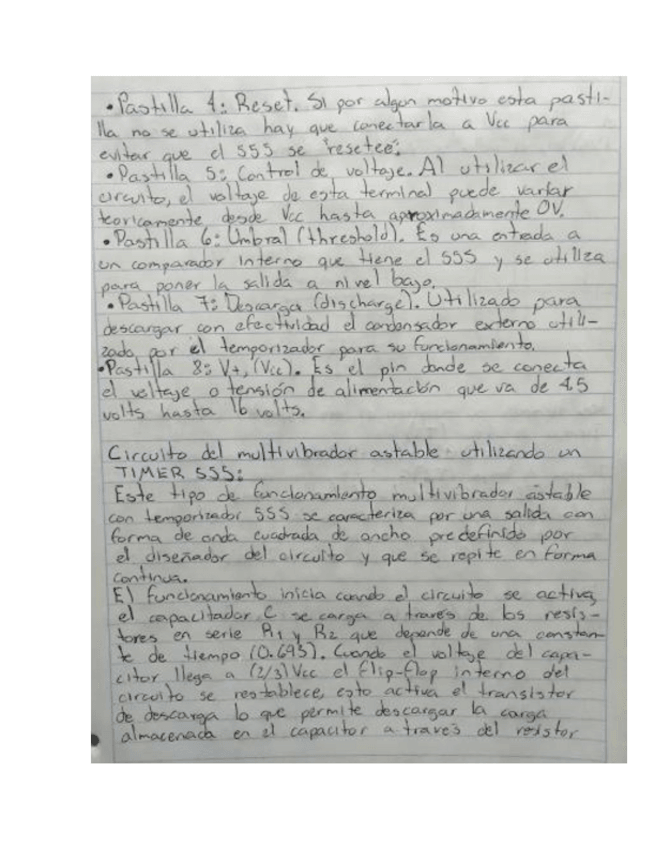 • Pastilla 4: Reset. Si por algun motivo esta pasti-
lla no se utiliza hay que conectarla a Vcc para
evitar que el 555 se "resetee".
• Pastilla 5: Control de voltaje. Al utilizar el
circuito, el voltaje de esta terminal puede variar
teoricamente desde Vcc hasta aproximadamente 0V.
• Pastilla 6: Umbral (threshold). Es una entrada a
un comparador interno que tiene el 555 y se utiliza
para poner la salida a nivel bajo.
• Pastilla 7: Descarga (discharge). Utilizado para
descargar con efectividad el condensador externo utili-
zado por el temporizador para su funcionamiento.
• Pastilla 8: V+, (Vcc). Es el pin donde se conecta
el voltaje o tensión de alimentación que va de 4.5
volts hasta 16 volts.
Circuito del multivibrador astable utilizando un
TIMER 555:
Este tipo de funcionamiento multivibrador astable
con temporizador 555 se caracteriza por una salida con
forma de onda cuadrada de ancho predefinido por
el diseñador del circuito y que se repite en forma
continua.
El funcionamiento inicia cuando el circuito se activa,
el capacitador C se carga a través de los resis-
tores en serie R1 y R2 que depende de una constan-
te de tiempo (0.693). Cuando el voltaje del capa-
citor llega a (2/3) Vcc el flip-flop interno del
circuito se restablece, esto activa el transistor
de descarga lo que permite descargar la carga
almacenada en el capacitor a través del resistor